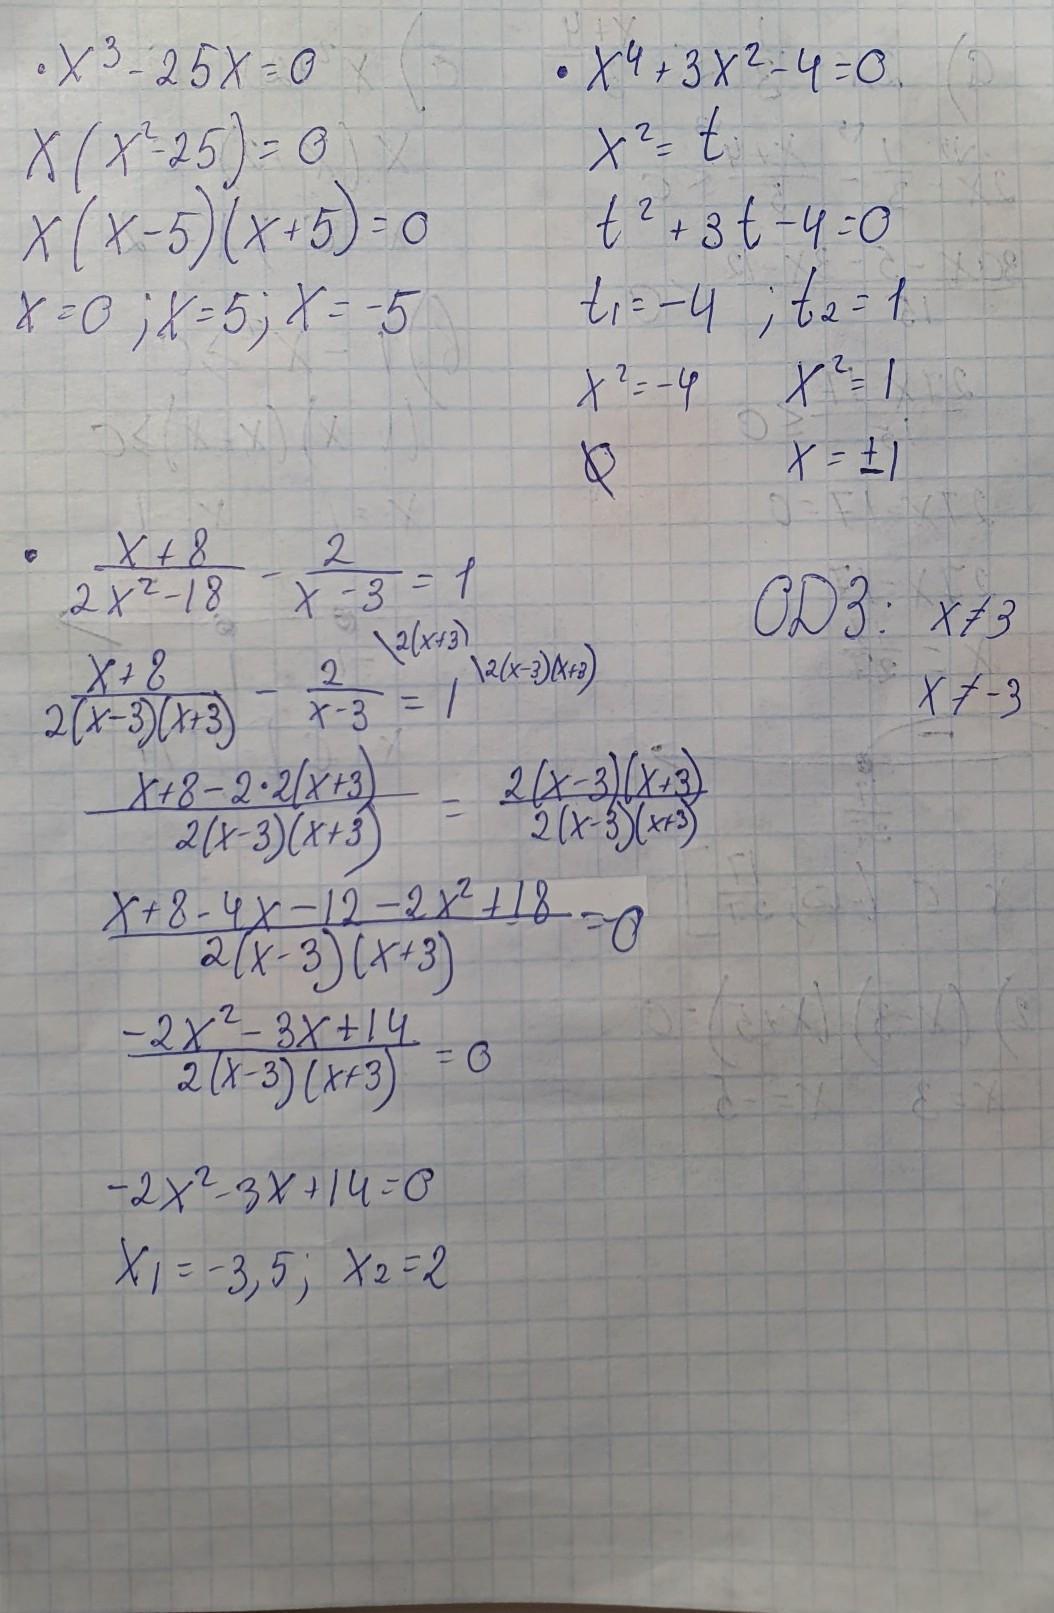 • x³ - 25x = 0
x(x² - 25) = 0
x(x - 5)(x + 5) = 0
x = 0; x = 5; x = -5
• x⁴ + 3x² - 4 = 0
x² = t
t² + 3t - 4 = 0
t₁ = -4 ; t₂ = 1
x² = -4 x² = 1
∅ x = ±1
• (x + 8)/(2x² - 18) - 2/(x - 3) = 1
ОДЗ: x ≠ 3
x ≠ -3
(x + 8)/(2(x - 3)(x + 3)) - 2/(x - 3) \2(x+3) = 1 \2(x-3)(x+3)
(x + 8 - 2·2(x + 3))/(2(x - 3)(x + 3)) = (2(x - 3)(x + 3))/(2(x - 3)(x + 3))
(x + 8 - 4x - 12 - 2x² + 18)/(2(x - 3)(x + 3)) = 0
(-2x² - 3x + 14)/(2(x - 3)(x + 3)) = 0
-2x² - 3x + 14 = 0
x₁ = -3,5; x₂ = 2